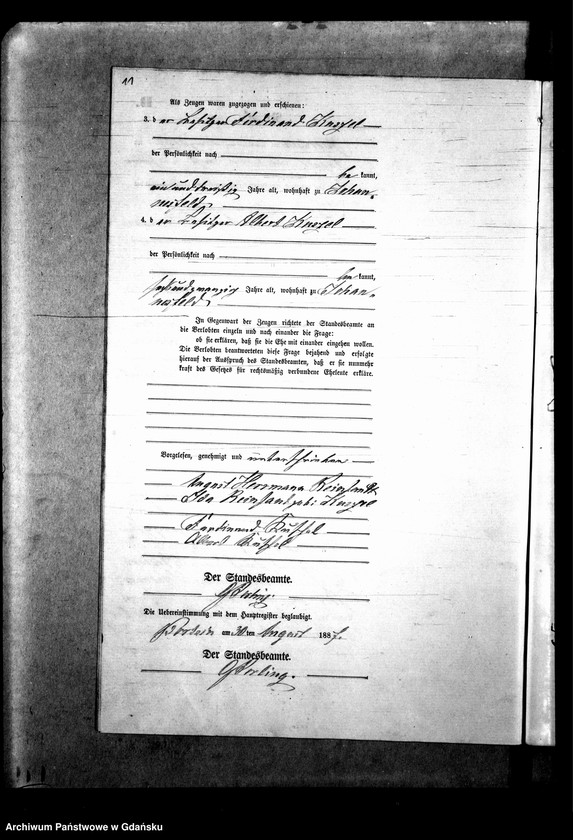 11
Als Zeugen waren zugezogen und erschienen:
3. der Besitzer Ferdinand Kussel
der Persönlichkeit nach
be kannt,
einunddreißig Jahre alt, wohnhaft zu Johan-
nisfelde
4. der Besitzer Albert Kussel
der Persönlichkeit nach
be kannt,
sechsundzwanzig Jahre alt, wohnhaft zu Johan-
nisfelde
In Gegenwart der Zeugen richtete der Standesbeamte an
die Verlobten einzeln und nach einander die Frage:
ob sie erklären, daß sie die Ehe mit einander eingehen wollen.
Die Verlobten beantworteten diese Frage bejahend und erfolgte
hierauf der Ausspruch des Standesbeamten, daß er sie nunmehr
kraft des Gesetzes für rechtmäßig verbundene Eheleute erkläre.
Vorgelesen, genehmigt und unterschrieben
August Herrmann
Ida geb. Kussel
Ferdinand Kussel
Albert Kussel
Der Standesbeamte.
Die Uebereinstimmung mit dem Hauptregister beglaubigt.
am 30 ten August 1887.
Der Standesbeamte.
Archiwum Państwowe w Gdańsku